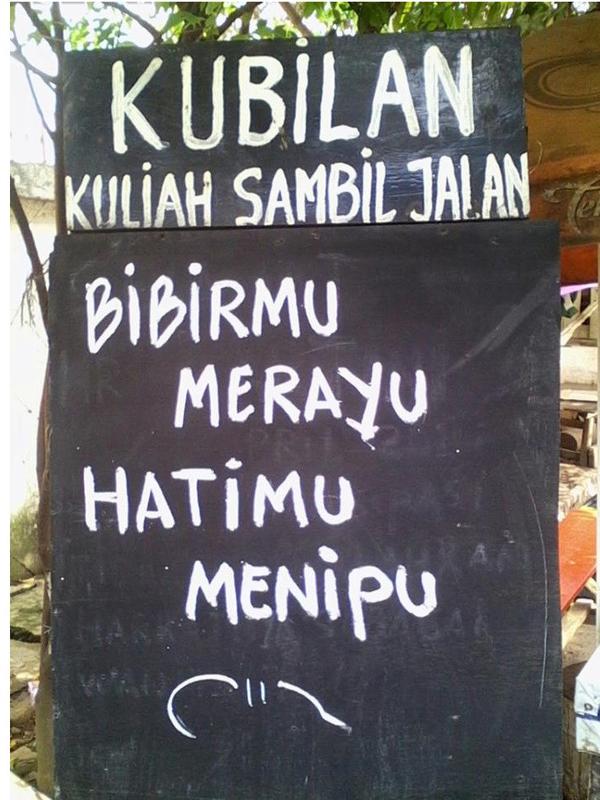 KUBiLAN
KULiAH SAMBiL JALAN
BiBiRMU
MERAYU
HATiMU
MENiPU